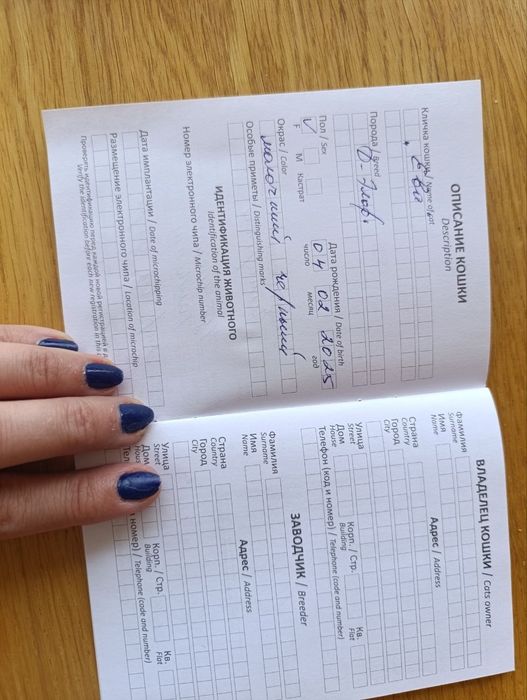 ОПИСАНИЕ КОШКИ
Description
Кличка кошки / Name of cat
Порода / Breed
Пол / Sex
F M Кастрат
Дата рождения / Date of birth
04 02 2025
число месяц год
Окрас / Color
молочный черный
Особые приметы / Distinguishing marks
ИДЕНТИФИКАЦИЯ ЖИВОТНОГО
Identification of the animal
Номер электронного чипа / Microchip number
Дата имплантации / Date of microchipping
Размещение электронного чипа / Location of microchip
Проверить идентификацию перед каждой новой регистрацией в
Verify the identification before each new registration in this
ВЛАДЕЛЕЦ КОШКИ / Cats owner
Фамилия
Surname
Имя
Name
Адрес / Address
Страна
Country
Город
City
Улица
Street
Дом Корп. / Стр. Кв.
House Building Flat
Телефон (код и номер) / Telephone (code and number)
ЗАВОДЧИК / Breeder
Фамилия
Surname
Имя
Name
Адрес / Address
Страна
Country
Город
City
Улица
Street
Дом Корп. / Стр. Кв.
House Building Flat
Тел и номер) / Telephone (code and number)